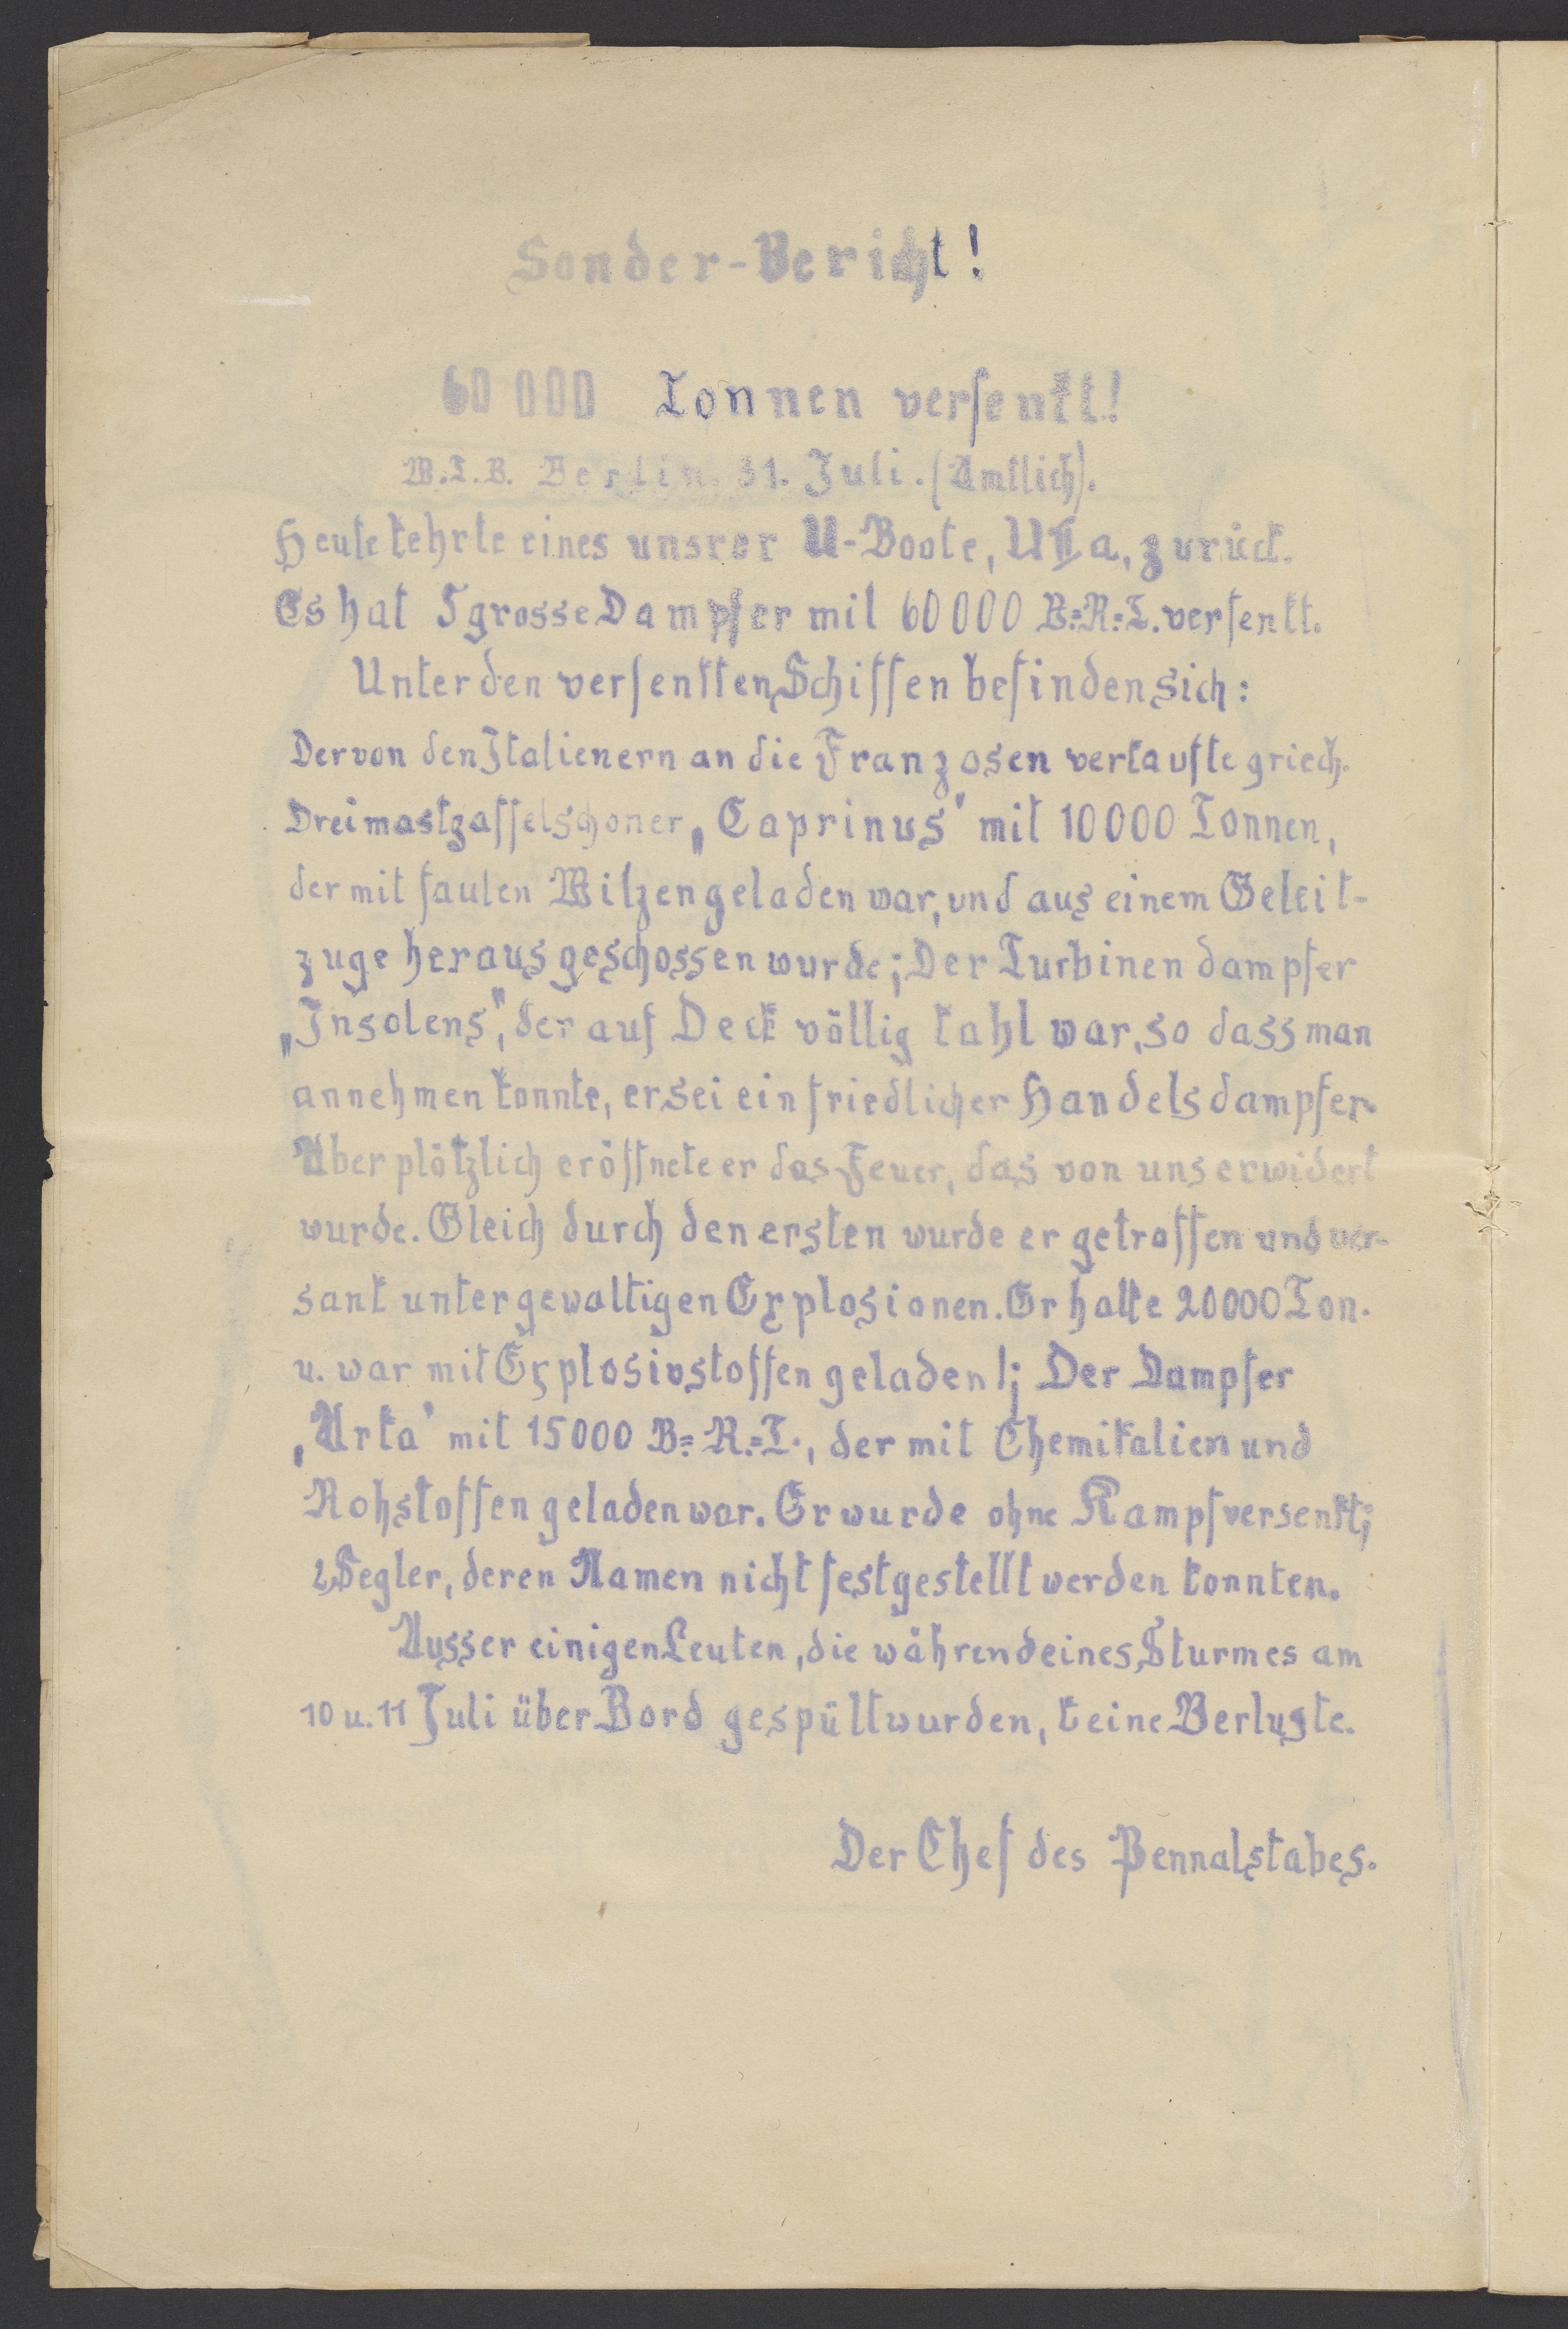 Sonder-Bericht!
60 000 Tonnen versenkt!
W.T.B. Berlin. 31. Juli. (Amtlich).
Heute kehrte eines unsrer U-Boote, UIIa, zurück.
Es hat 5 grosse Dampfer mit 60000 B.=R.=T. versenkt.
Unter den versenkten Schiffen befinden sich:
Der von den Italienern an die Franzosen verkaufte griech.
Dreimastgaffelschoner „Caprinus" mit 10000 Tonnen,
der mit faulen Witzen geladen war, und aus einem Geleit-
zuge herausgeschossen wurde; Der Turbinendampfer
„Insolens", der auf Deck völlig kahl war, so dass man
annehmen konnte, er sei ein friedlicher Handelsdampfer.
Aber plötzlich eröffnete er das Feuer, das von uns erwidert
wurde. Gleich durch den ersten wurde er getroffen und ver-
sank unter gewaltigen Explosionen. Er hatte 20000 Ton.
u. war mit Explosivstoffen geladen!; Der Dampfer
„Arka" mit 15000 B.=R.=T., der mit Chemikalien und
Rohstoffen geladen war. Er wurde ohne Kampf versenkt;
2 Segler, deren Namen nicht festgestellt werden konnten.
Ausser einigen Leuten, die während eines Sturmes am
10 u. 11 Juli über Bord gespült wurden, keine Verluste.
Der Chef des Pennalstabes.